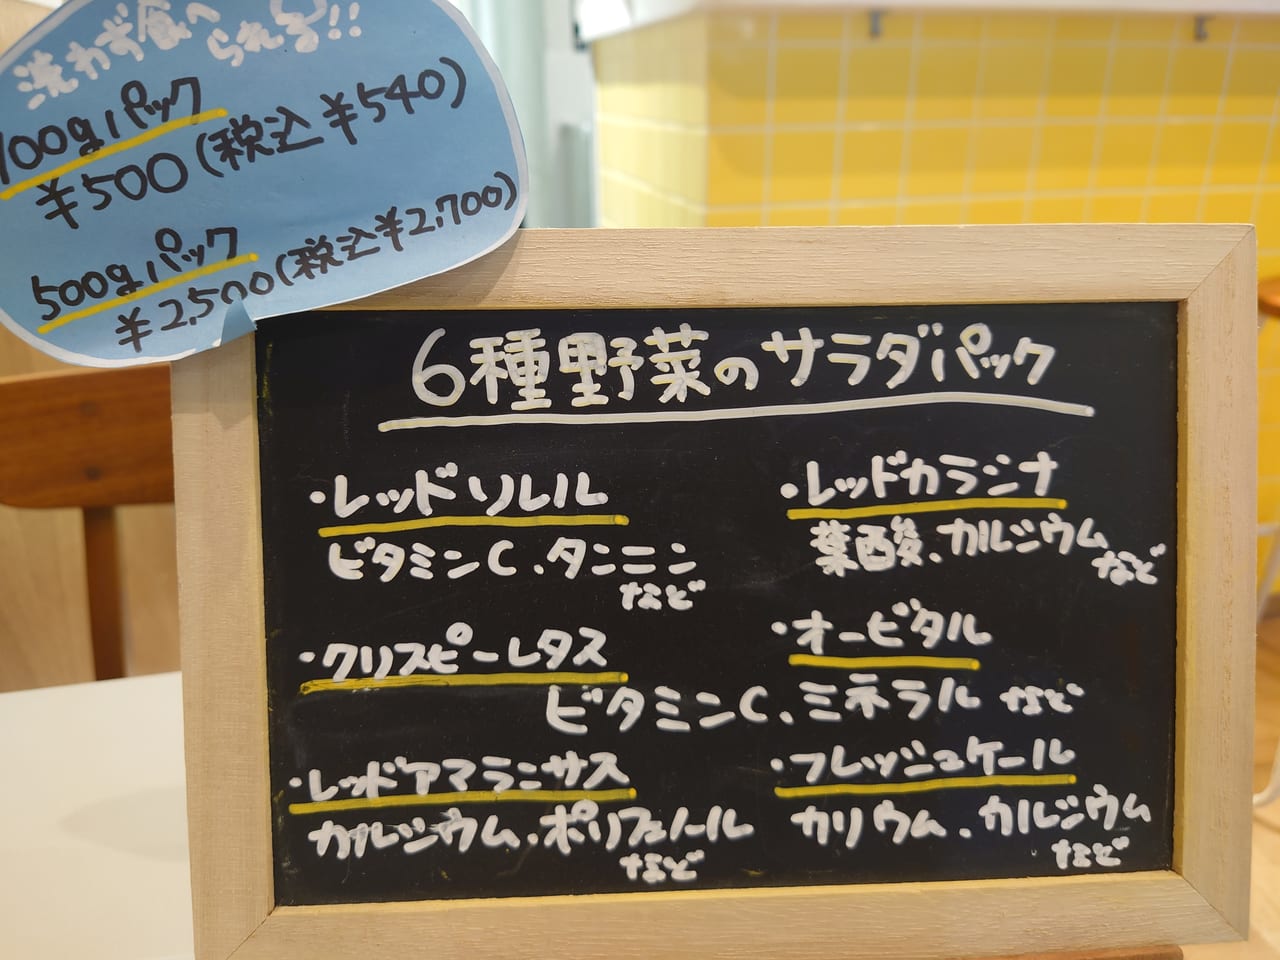 洗わず食べ
られる!!
100gパック
¥500(税込¥540)
500gパック
¥2,500(税込¥2,700)
6種野菜のサラダパック
・レッドソレル
ビタミンC、タンニン
など
・クリスピーレタス
・レッドアマランサス
カルシウム、ポリフェノール
など
・レッドカラシナ
葉酸、カルシウム
など
・オービタル
ビタミンC、ミネラル など
・フレッシュケール
カリウム、カルシウム
など